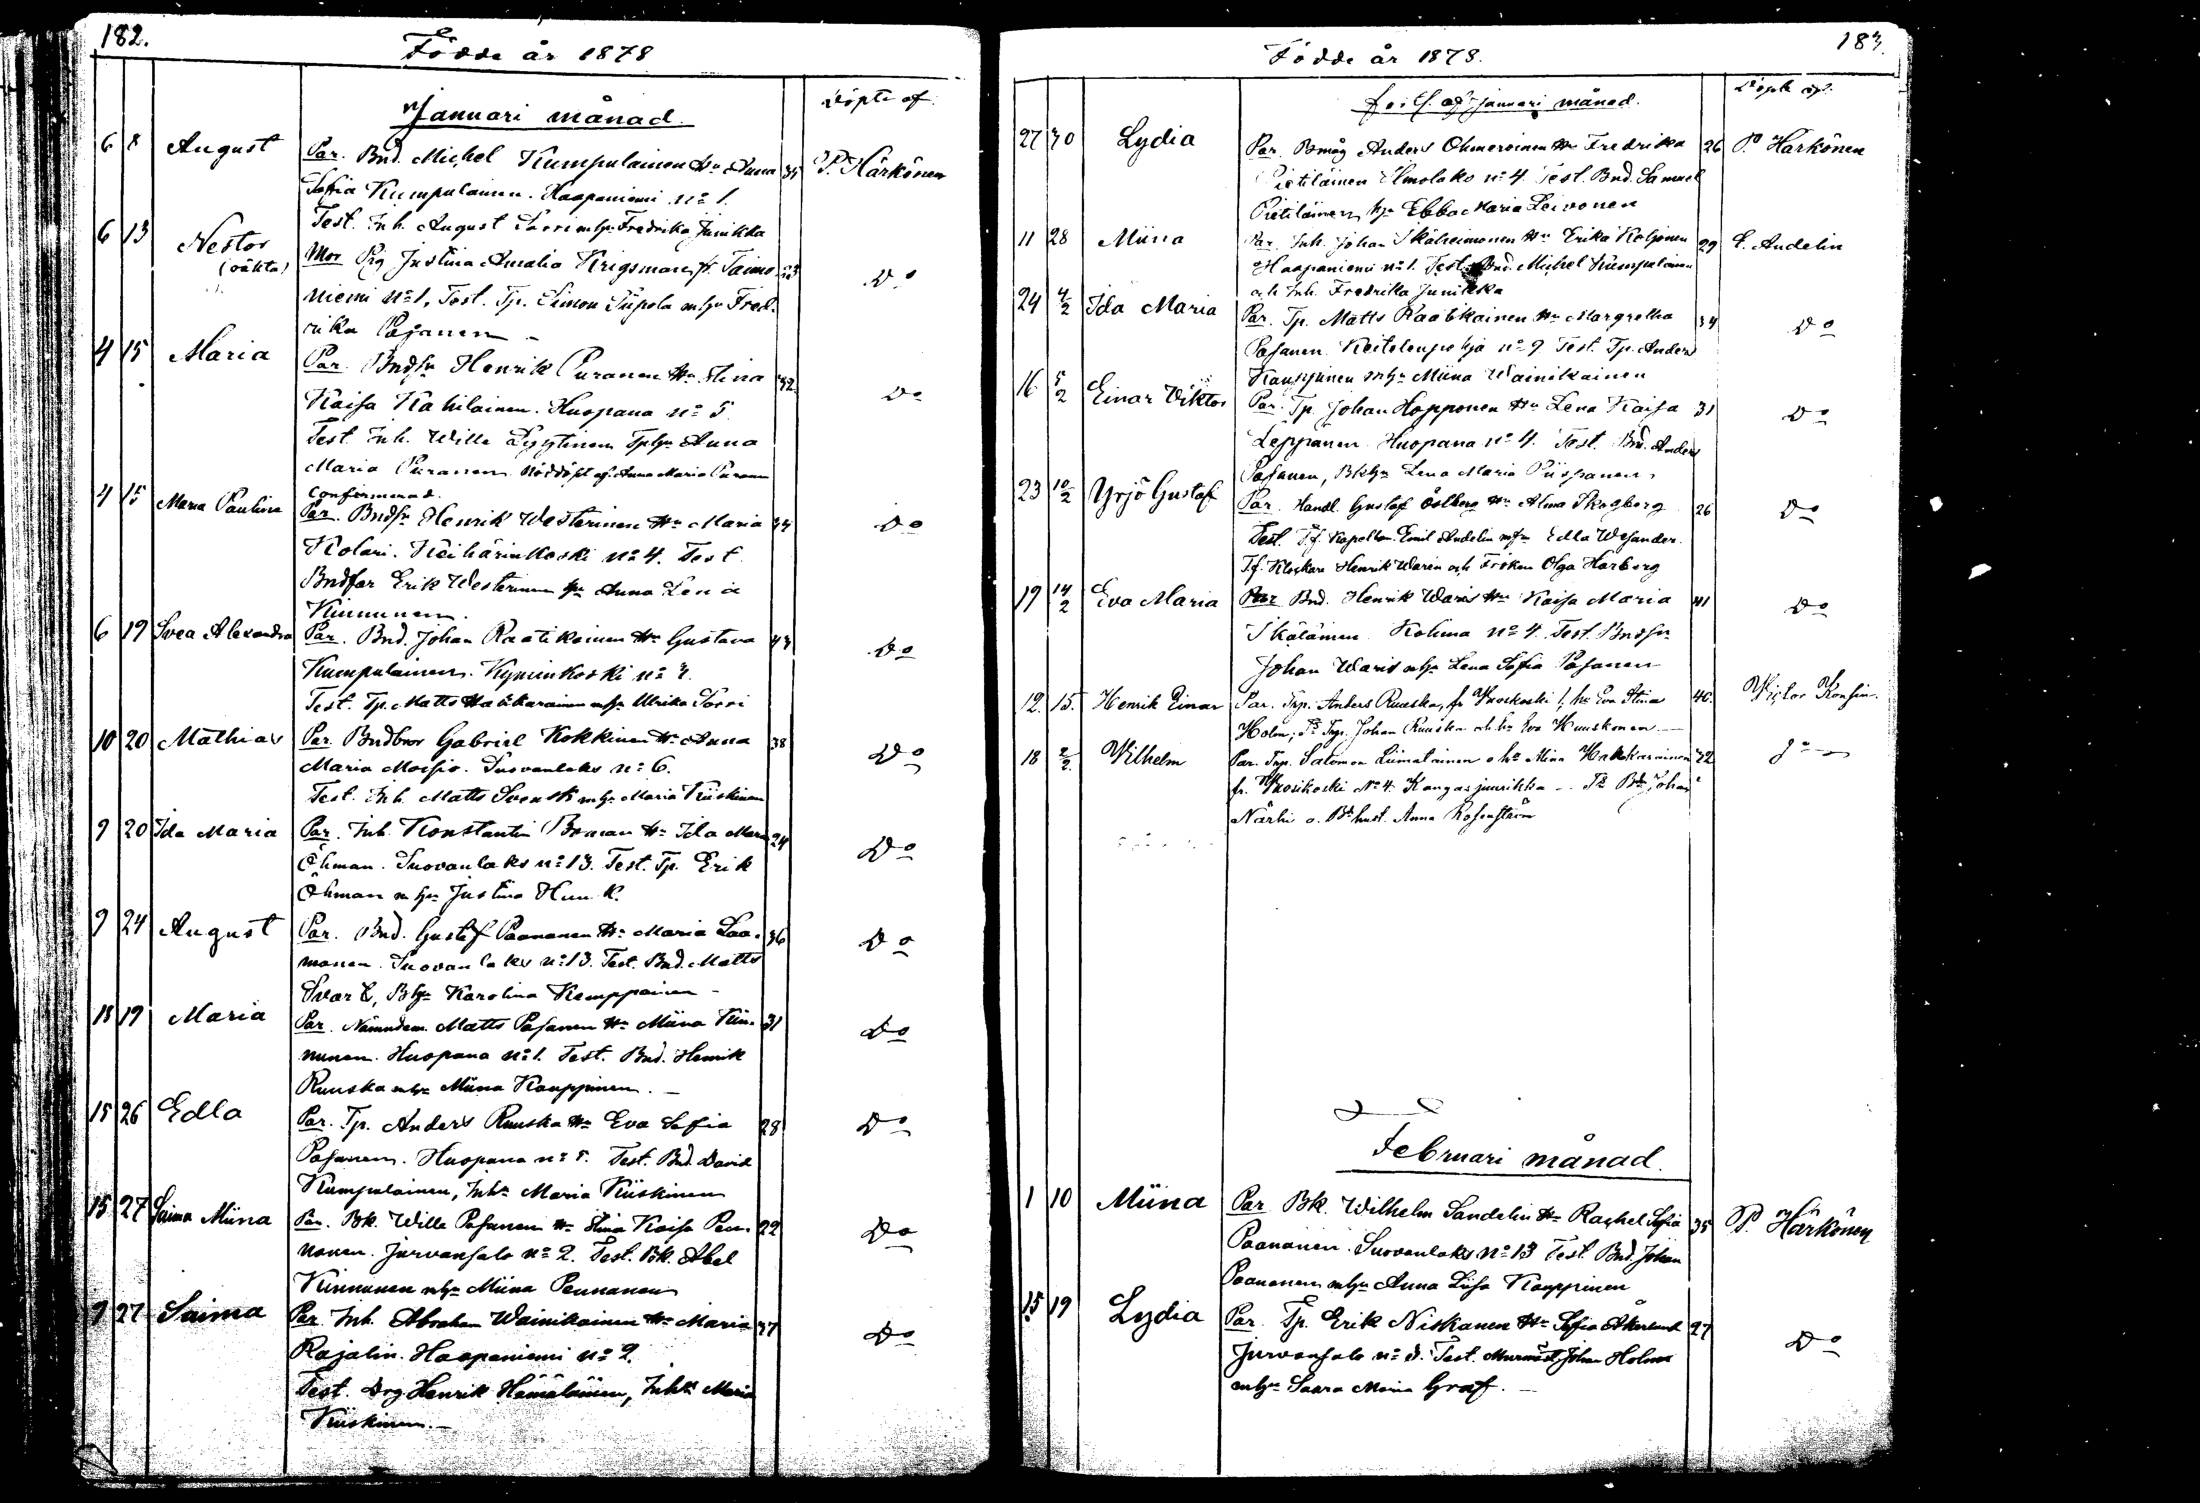 182.
Födde år 1878
Januari månad.
Döpte af
6 8 August Par. Bnd. Michel Kumpulainen Hu Anna 35 P. Härkönen
Sofia Kumpulainen. Haapaniemi No 1.
Test. Inh. August Sorri mhu Fredrika Junikka
6 13 Nestor (oäkta) Mor Pig Justina Amalia Krigsman fr. Taimo 23 Do
niemi No 1, Test. Tp. Simon Siipola mhu Fred-
rika Pasanen
4 15 Maria Par. Bndsn Henrik Puranen Hu Stina 32 Do
Kaisa Kahilainen. Huopana No 5.
Test. Inh. Wille Lyytinen Tphu Anna
Maria Puranen. Nöddöpt af Anna Maria Puranen
Confirmerad.
4 15 Maria Paulina Par. Bndsn Henrik Westerinen Hu Maria 34 Do
Kolari. Keihärinkoski No 4. Test
Bndfar Erik Westerinen hu Anna Lena
Kinnunen.
6 19 Svea Alexandra Par. Bnd. Johan Raatikainen Hu Gustava 43 Do
Kumpulainen. Kyminkoski No
Test. Tp. Matts mhu Ulrika Sorri
10 20 Mathias Par. Bndbror Gabriel Kokkinen Hu Anna 38 Do
Maria Moisio. Suovanlaks No 6.
Test. Inh. Matts Svensk mhu Maria Kiiskinen
9 20 Ida Maria Par. Inh. Konstantin Boman Hu Ida Maria 24 Do
Öhman. Suovanlaks No 13. Test. Tp. Erik
Öhman mhu Justina Huu K.
9 24 August Par. Bnd. Gustaf Paananen Hu Maria Laa- 36 Do
manen. Suovanlaks No 13. Test. Bnd. Matts
Svar, Bhu Karolina Kemppainen
18 19 Maria Par. Nämndem. Matts Pasanen Hu Miina Kin- 31 Do
nunen. Huopana No 1. Test. Bnd. Henrik
Ruuska mhu Miina Kauppinen.
15 26 Edla Par. Tp. Anders Ruuska Hu Eva Sofia 28 Do
Pasanen. Huopana No 5. Test. Bnd. David
Kumpulainen, Inhu Maria Kiiskinen
15 27 Saima Miina Par. Bk. Wille Pasanen Hu Stina Kaisa Pen- 22 Do
nanen. Jurvansalo No 2. Test. Bk. Abel
Kinnunen mhu Miina Pennanen
9 27 Saima Par. Inh. Abraham Wainikainen Hu Maria 37 Do
Rajalin. Haapaniemi No 2.
Test. Drg Henrik Hämäläinen, Inh Maria
Kiiskinen.
183.
Födde år 1878.
forts. af Januari månad.
Döpte af.
27 30 Lydia Par. Bmåg Anders Ohmeroinen Hu Fredrika 26 P. Härkönen
Pietiläinen Ilmolaks No 4. Test. Bnd. Samuel
Pietiläinen, hu Ebba Maria Leivonen
11 28 Miina Par. Inh. Johan Ikäheimonen Hu Erika Koljonen 29 E. Andelin
Haapaniemi No 1. Test. Bnd. Michel Kumpulainen
och Inh. Fredrika Junikka
24 4/2 Ida Maria Par. Tp. Matts Raatikainen Hu Margretha 34 Do
Pasanen. Keitelenpohja No 9 Test. Tp. Anders
Kauppinen mhu Miina Wainikainen
16 5/2 Einar Viktor Par. Tp. Johan Hopponen Hu Lena Kaisa 31 Do
Leppänen. Huopana No 4. Test. Bnd. Anders
Pasanen, Bkhu Lena Maria Piispanen
23 10/2 Yrjö Gustaf Par. Handl. Gustaf Östberg Hu Alma Skogberg 26 Do
Test. Tf. Kapellan Emil Andelin mfru Edla Wesander.
Tf. Klockare Henrik Warén och Fröken Olga Harberg
19 14/2 Eva Maria Par Bnd. Henrik Waris Hu Kaisa Maria 41 Do
Ikäläinen Kolima No 4. Test. Bndsn
Johan Waris mhu Lena Sofia Pasanen
12. 15. Henrik Einar Par. Trp. Anders Ruuska, fr Wuoskoski 1, hu Eva Stina 40. Victor Konsin.
Holm, Ts Trp. Johan Ruuska och hu Eva Huuskonen
18 2/2. Wilhelm Par. Trp. Salomon Liimatainen o hu Miina Hakkarainen 32 do
fr. Wuosikoski No 4. Kangasjuurikka Ts Bd Johan
Närhi o. Bdhust. Anna Rosenström
Februari månad.
1 10 Miina Par Bk. Wilhelm Sandelin Hu Rachel Sofia 35 P. Härkönen
Paananen. Suovanlaks No 13 Test. Bnd. Johan
Paananen mhu Anna Liisa Kauppinen
15 19 Lydia Par. Tp. Erik Niskanen Hu Sofia Åkerlund 27 Do
Jurvansalo No 8. Test. Murmäst Johan Holm
mhu Saara Maria Graf.